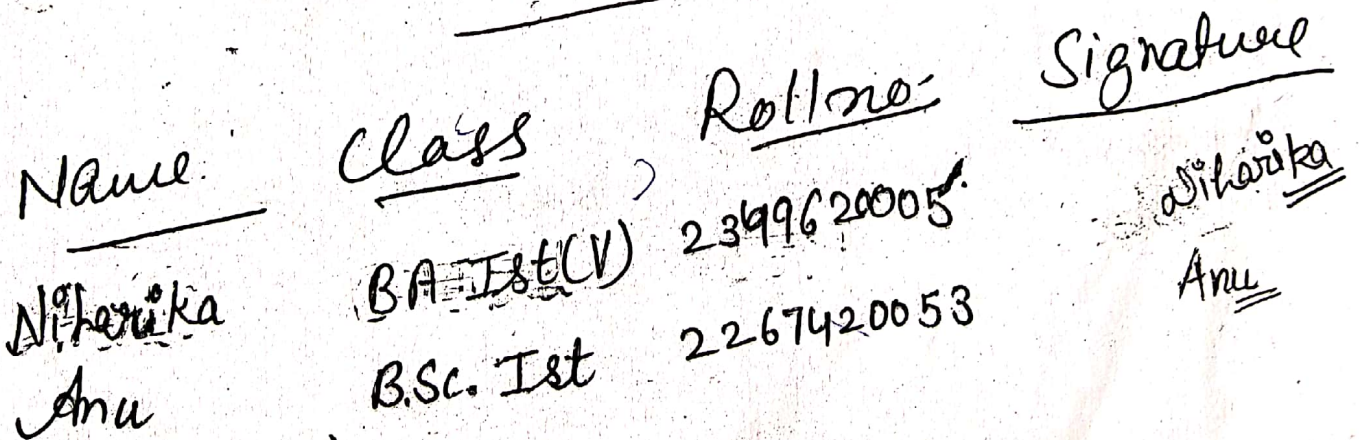 Name Class Roll no. Signature
Niharika BA Ist (V) 23499620005 Niharika
Anu B.Sc. Ist 2267420053 Anu